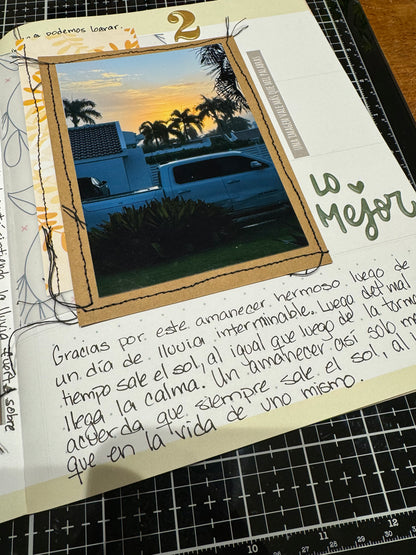 podemos lograr.
2
UNA IMAGEN VALE MÁS QUE MIL PALABRAS
Lo
Mejor
Gracias por este amanecer hermoso luego de
un día de lluvia interminable. Luego del mal
tiempo sale el sol, al igual que luego de la
llega la calma. Un amanecer así solo
acuerda que siempre sale el sol, al
que en la vida de uno mismo.
la lluvia
sobre